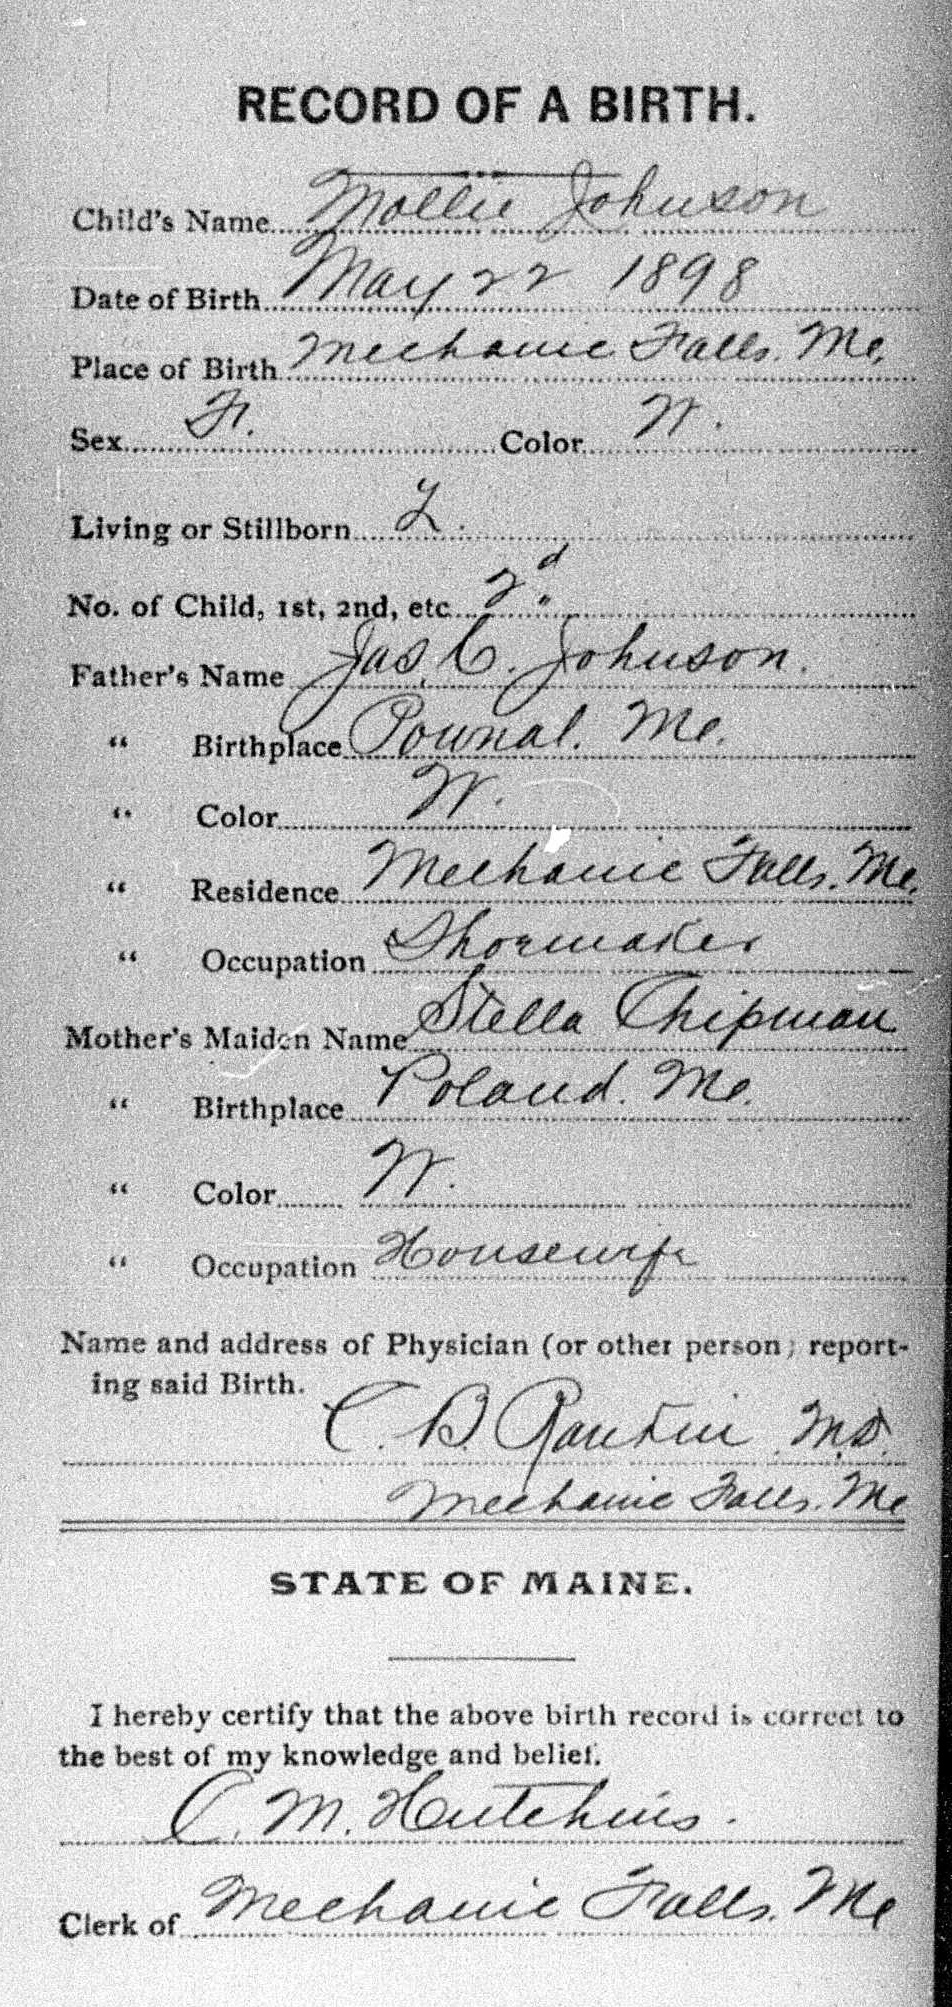 RECORD OF A BIRTH.
Child's Name Mollie Johnson
Date of Birth May 22 1898
Place of Birth Mechanic Falls. Me.
Sex F. Color W.
Living or Stillborn L.
No. of Child, 1st, 2nd, etc 2d.
Father's Name Jas. C. Johnson.
" Birthplace Pownal. Me.
" Color W.
" Residence Mechanic Falls. Me.
" Occupation Shoemaker
Mother's Maiden Name Stella Chipman
" Birthplace Poland. Me.
" Color W.
" Occupation Housewife
Name and address of Physician (or other person) report-
ing said Birth.
C. B. Rankin M.D.
Mechanic Falls. Me
STATE OF MAINE.
I hereby certify that the above birth record is correct to
the best of my knowledge and belief.
C. M. Hutchins.
Clerk of Mechanic Falls. Me